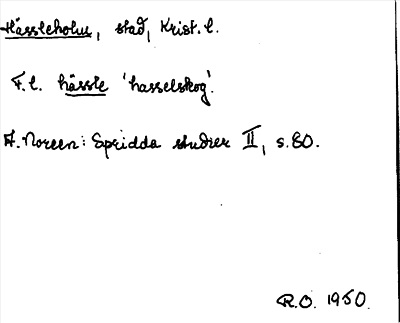 Hässleholm, stad, Krist. l.
F. l. hässle 'hasselskog'.
A. Noreen: Spridda studier II, s. 80.
R.O. 1950.